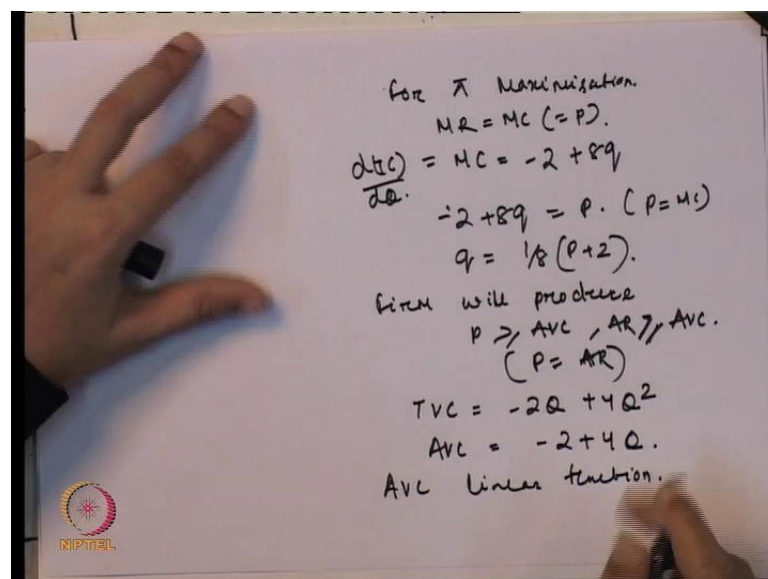 For π Maximisation.
MR = MC (= P).
d(TC)/dQ. = MC = -2 + 8q
-2 + 8q = P. (P = MC)
q = 1/8 (P+2).
Firm will produce
P ≥ AVC, AR ≥ AVC.
(P = AR)
TVC = -2Q + 4Q²
AVC = -2 + 4Q.
AVC linear function.
NPTEL